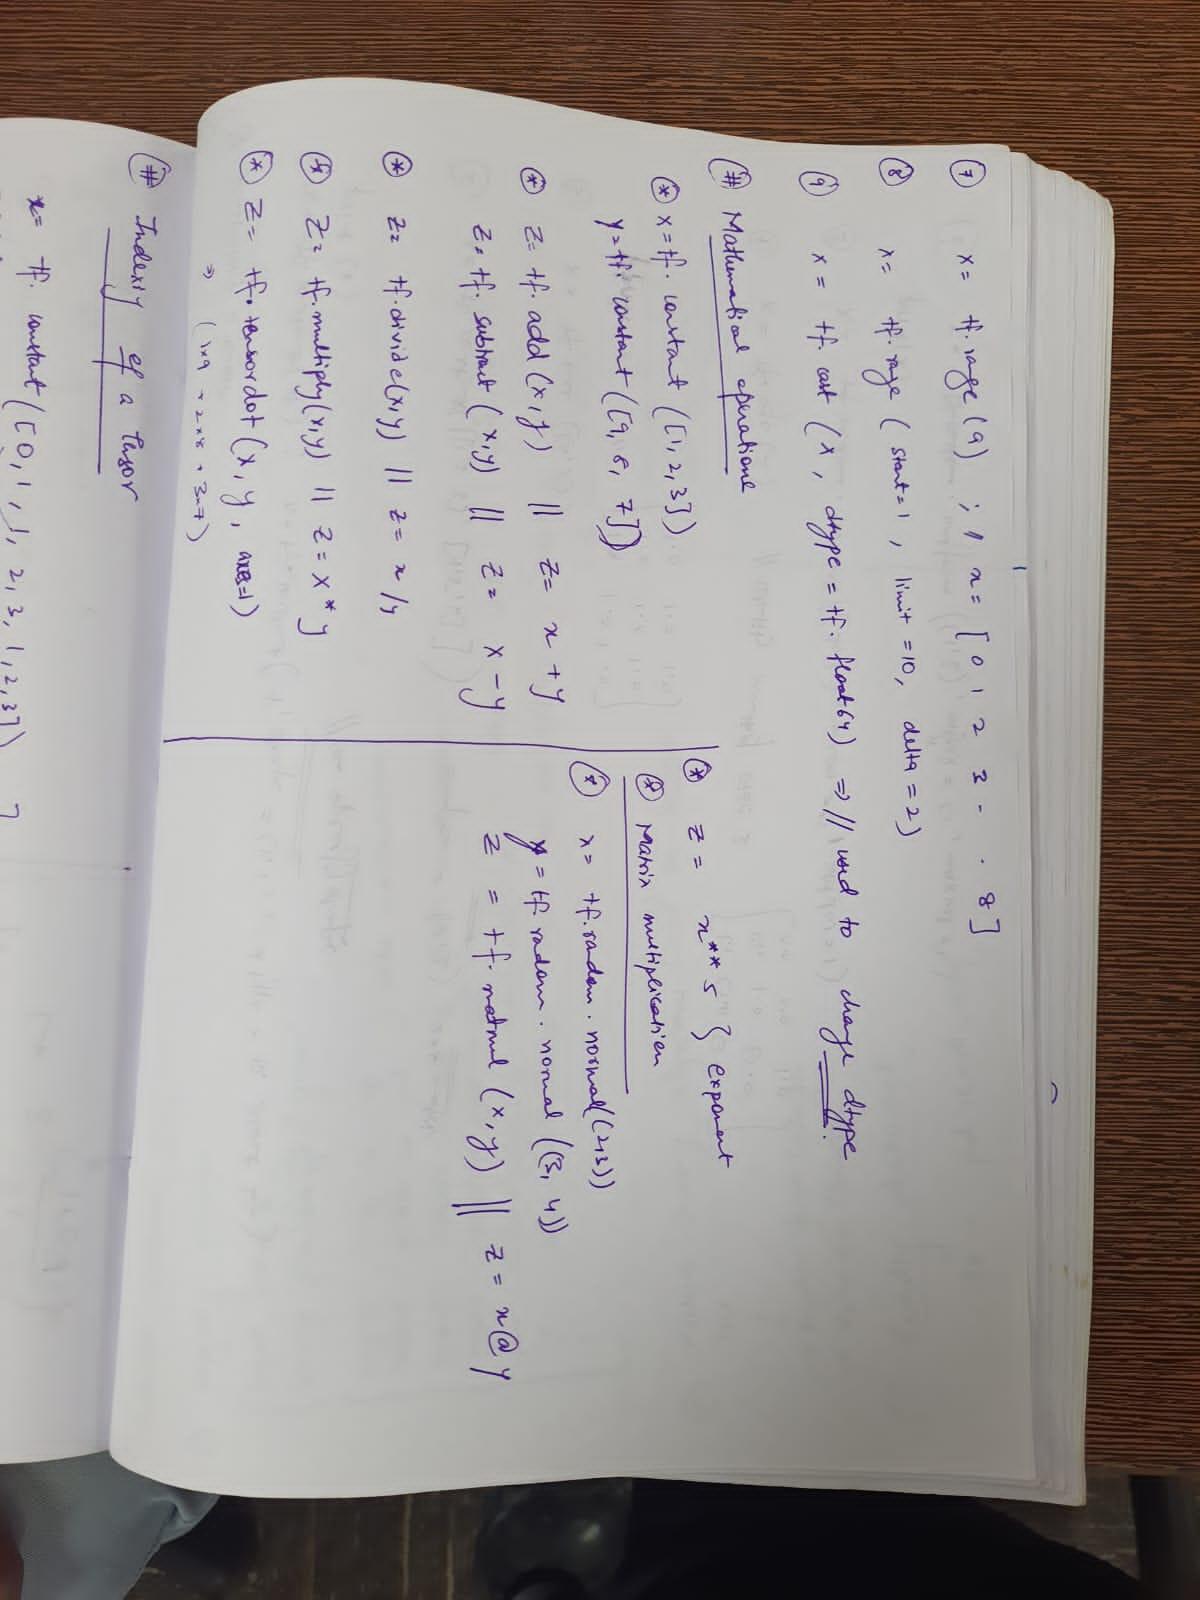 ⑦ x = tf.range(9) ; // x = [0 1 2 3 - . 8]
⑧ x = tf.range (start=1, limit=10, delta=2)
⑨ x = tf.cast (x, dtype = tf.float64) ⇒ // used to change dtype.
# Mathematical operations
* x = tf.constant ([1,2,3])
y = tf.constant ([9, 8, 7])
* z = tf.add(x,y) || z = x + y
z = tf.subtract (x,y) || z = x - y
* z = tf.divide(x,y) || z = x/y
* z = tf.multiply(x,y) || z = x * y
* z = tf.tensordot (x, y, axes=1)
⇒ (1×9 + 2×8 + 3×7)
* z = x**5 } exponent
* Matrix multiplication
* x = tf.random.normal((2,3))
y = tf.random.normal ((3, 4))
z = tf.matmul (x, y) || z = x@y
# Indexing of a tensor
x = tf.constant ([0, 1, 1, 2, 3, 1, 2, 3])